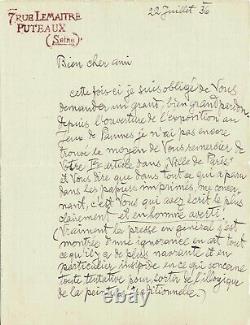 7 RUE LEMAITRE
PUTEAUX
(Seine)
22 Juillet 36
Bien cher ami
cette fois-ci je suis obligé de Vous
demander un grand, bien grand pardon
depuis l'ouverture de l'exposition au
Jeu de Paumes je n'ai pas encore
trouvé le moyen de Vous remercier de
Votre Bel article dans "Ville de Paris"
et Vous dire que dans tout ce qui a paru
dans les papiers imprimés, me concer-
nant, c'est Vous qui avez écrit le plus
clairement et en homme averti!
(Vraiment la presse en général s'est
montrée d'une ignorance, en dit tout
ce qu'il y a de plus navrant et en
particulier en ce qui concerne
toute tentative pour sortir de l'illogique
de la peinture